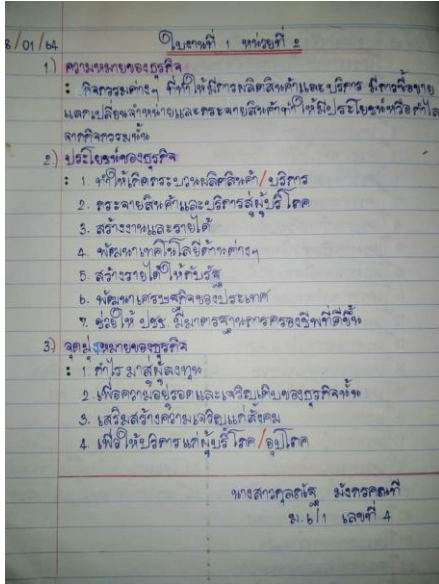 8/01/64
ใบงานที่ 1 หน่วยที่ 2
1) ความหมายของธุรกิจ
: กิจกรรมต่างๆ ที่ทำให้มีการผลิตสินค้าและบริการ มีการซื้อขาย
แลกเปลี่ยนจำหน่ายและกระจายสินค้าทำให้มีประโยชน์หรือกำไร
จากกิจกรรมนั้น
2) ประโยชน์ของธุรกิจ
: 1. ทำให้เกิดกระบวนผลิตสินค้า/บริการ
2. กระจายสินค้าและบริการสู่ผู้บริโภค
3. สร้างงานและรายได้
4. พัฒนาเทคโนโลยีด้านต่างๆ
5. สร้างรายได้ให้กับรัฐ
6. พัฒนาเศรษฐกิจของประเทศ
7. ช่วยให้ ปชช. มีมาตรฐานการครองชีพที่ดีขึ้น
3) จุดมุ่งหมายของธุรกิจ
: 1. กำไร มาสู่ผู้ลงทุน
2. เพื่อความอยู่รอดและเจริญเติบของธุรกิจนั้น
3. เสริมสร้างความเจริญแก่สังคม
4. เพื่อให้บริการแก่ผู้บริโภค/อุปโภค
นางสาวกุลณัฐ
ม.6/1 เลขที่ 4